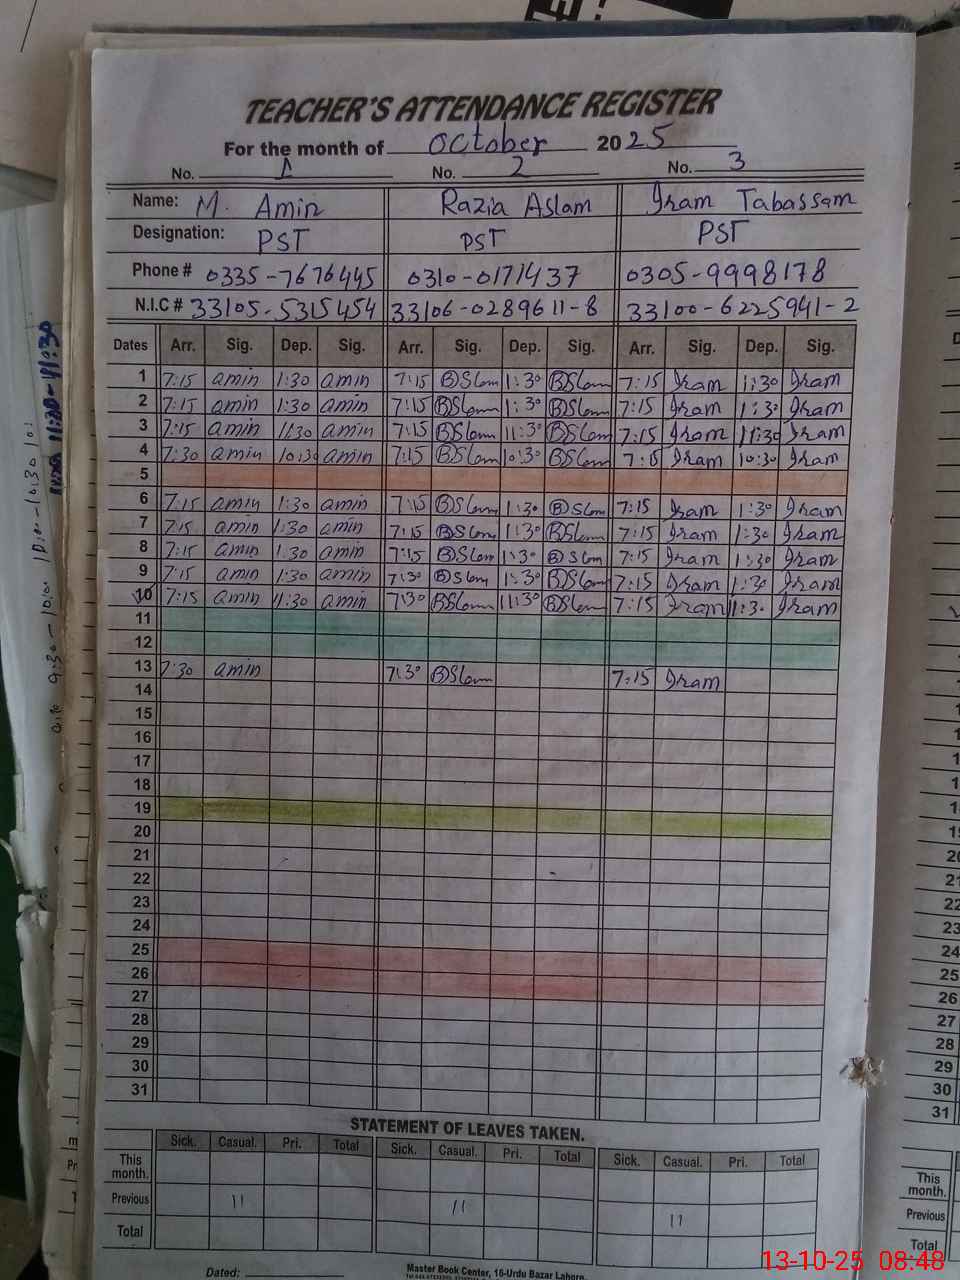 TEACHER'S ATTENDANCE REGISTER
For the month of October 2025
No. 1 No. 2 No. 3
Name: M. Amin Razia Aslam Iram Tabassam
Designation: PST PST PST
Phone # 0335-7676445 0310-0171437 0305-9998178
N.I.C # 33105-5315454 33106-0289611-8 33100-6225941-2
Dates Arr. Sig. Dep. Sig. Arr. Sig. Dep. Sig. Arr. Sig. Dep. Sig.
1 7:15 amin 1:30 amin 7:15 BSlam 1:30 BSlam 7:15 Iram 1:30 Iram
2 7:15 amin 1:30 amin 7:15 BSlam 1:30 BSlam 7:15 Iram 1:30 Iram
3 7:15 amin 11:30 amin 7:15 BSlam 11:30 BSlam 7:15 Iram 11:30 Iram
4 7:30 amin 10:30 amin 7:15 BSlam 10:30 BSlam 7:15 Iram 10:30 Iram
5
6 7:15 amin 1:30 amin 7:15 BSlam 1:30 BSlam 7:15 Iram 1:30 Iram
7 7:15 amin 1:30 amin 7:15 BSlam 1:30 BSlam 7:15 Iram 1:30 Iram
8 7:15 amin 1:30 amin 7:15 BSlam 1:30 BSlam 7:15 Iram 1:30 Iram
9 7:15 amin 1:30 amin 7:30 BSlam 1:30 BSlam 7:15 Iram 1:30 Iram
10 7:15 amin 11:30 amin 7:30 BSlam 11:30 BSlam 7:15 Iram 11:30 Iram
11
12
13 7:30 amin 7:30 BSlam 7:15 Iram
14
15
16
17
18
19
20
21
22
23
24
25
26
27
28
29
30
31
STATEMENT OF LEAVES TAKEN.
Sick. Casual. Pri. Total Sick. Casual. Pri. Total Sick. Casual. Pri. Total
This month.
Previous 11 11 11
Total
Dated:
Master Book Center, 16-Urdu Bazar Lahore.
13-10-25 08:48